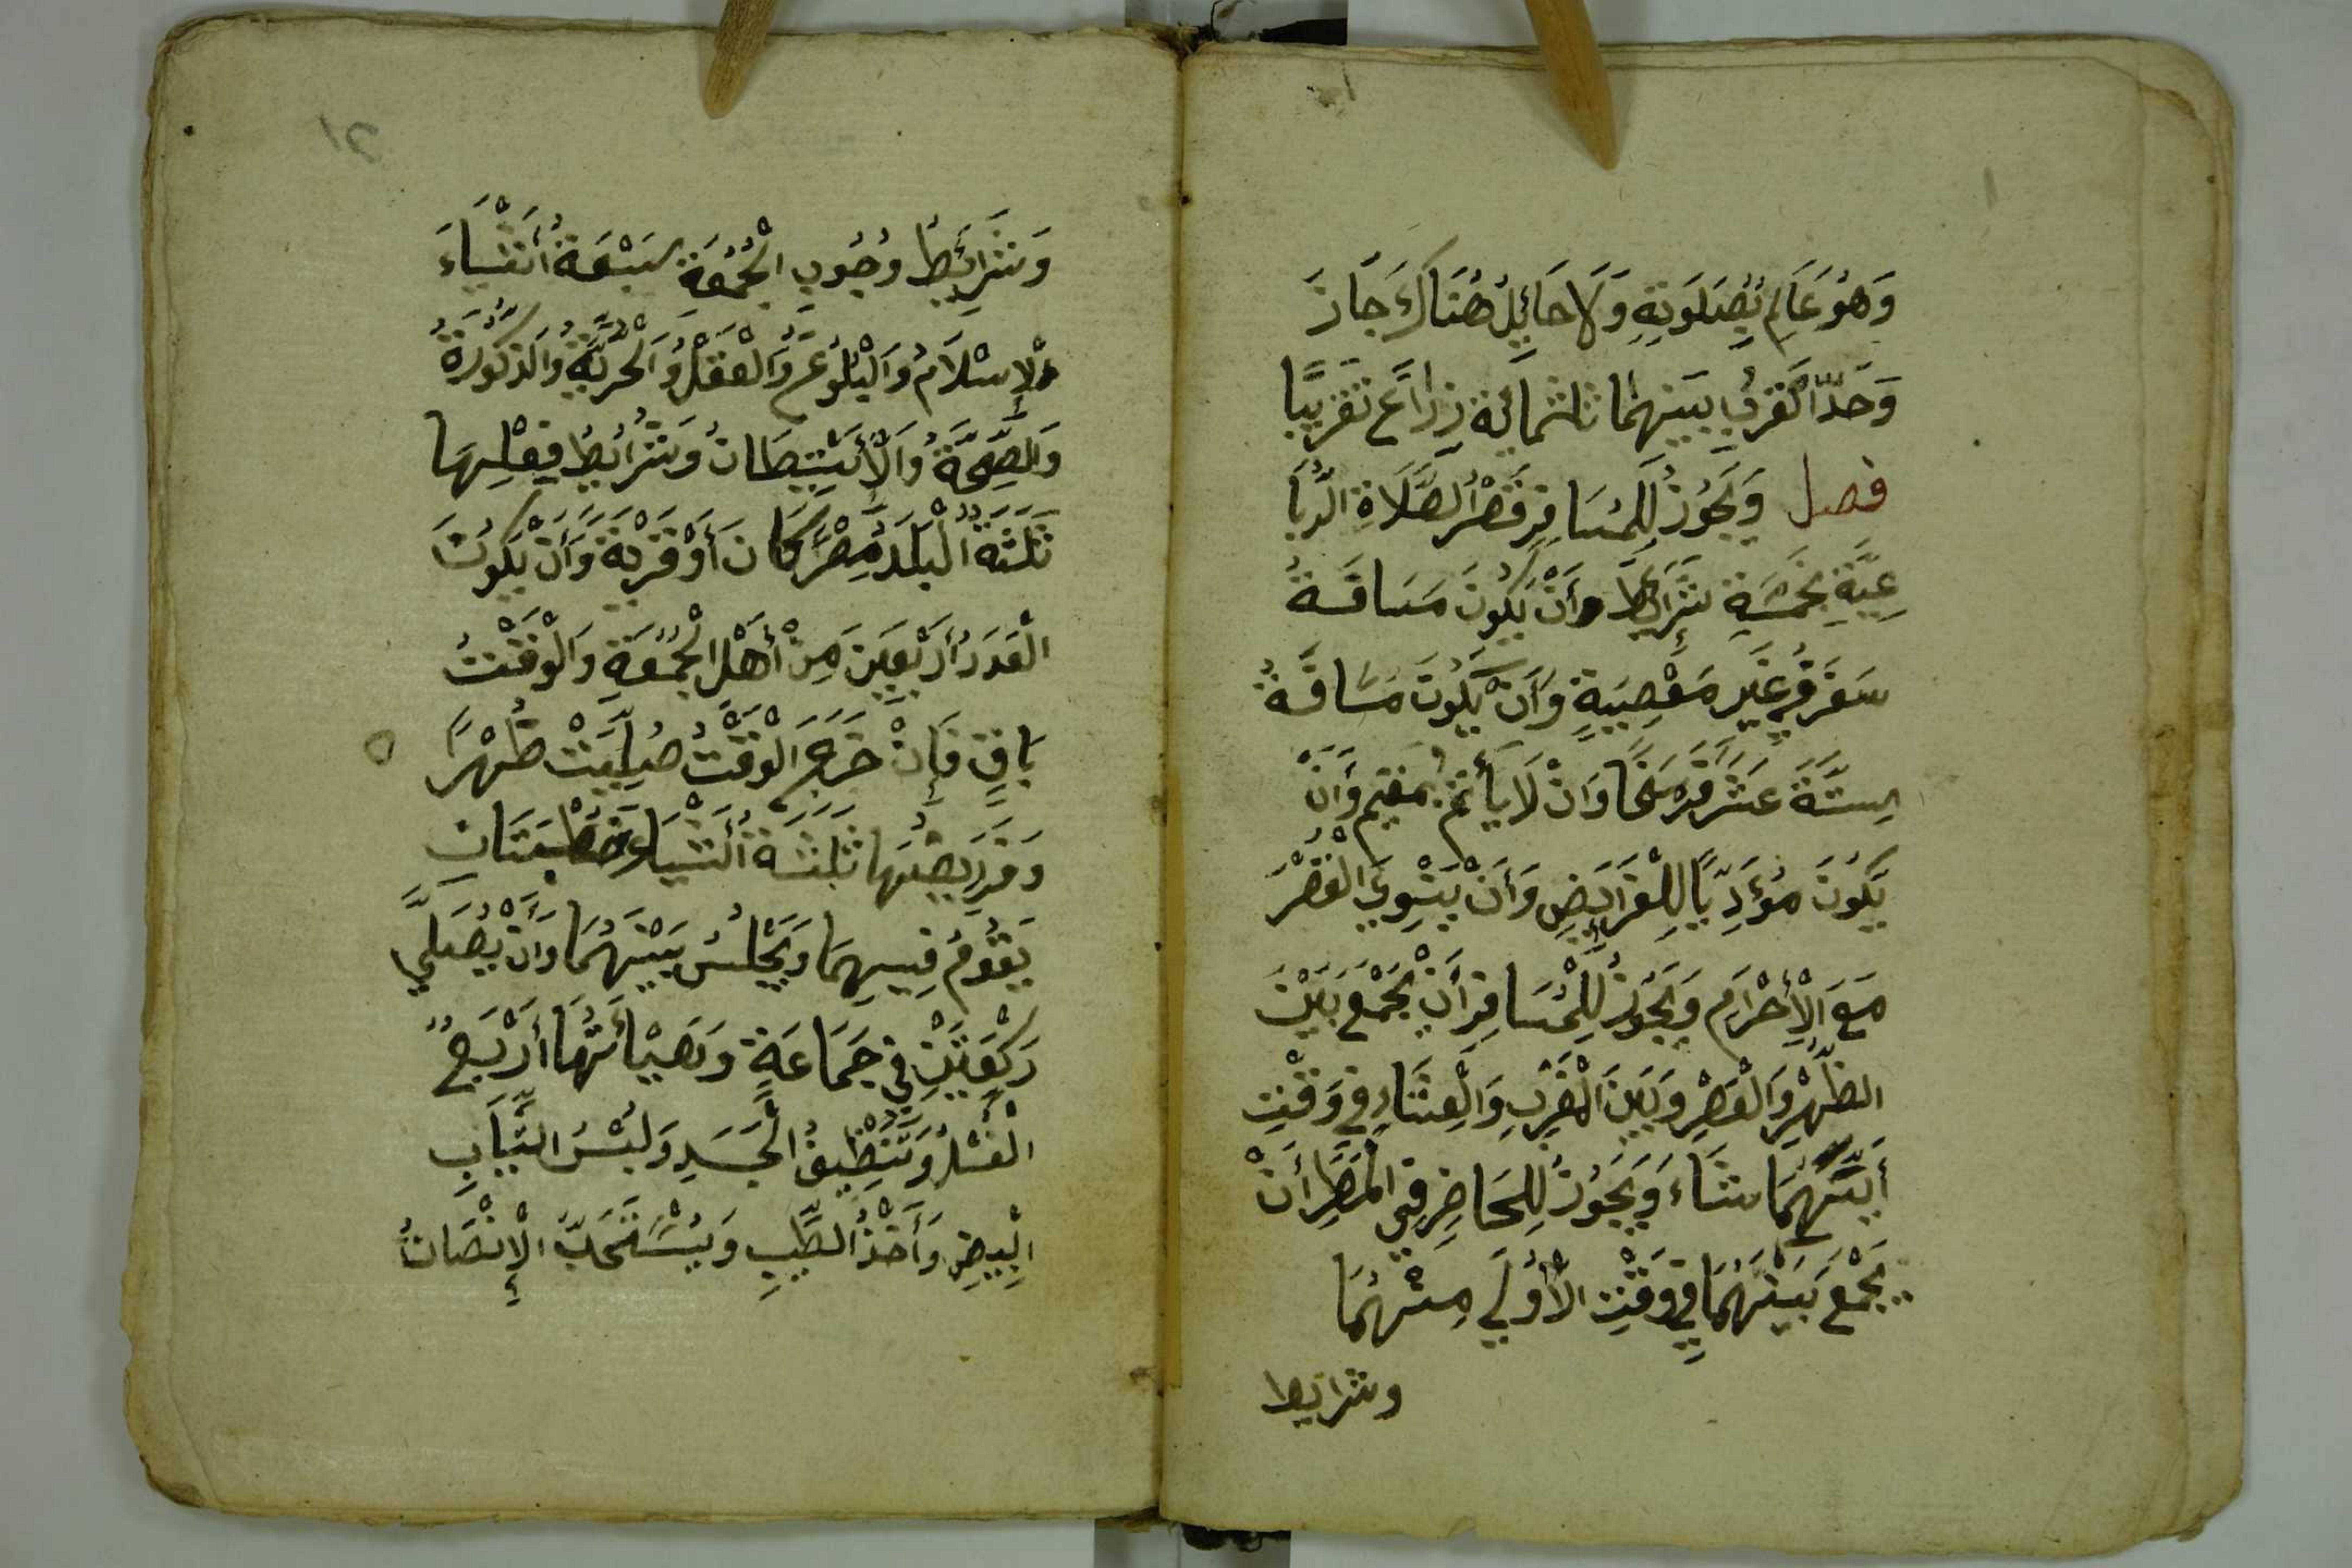 وَهُوَ عَالِمٌ بِصَلَوتِهِ وَلَا حَائِلَ هُنَاكَ جَازَ
وَحَدُّ الْقُرْبِ بَيْنَهُمَا ثلثمائة ذِرَاعٍ تَقْرِيبًا
فصل وَيَجُوزُ لِلْمُسَافِرِ قَصْرُ الصَّلَاةِ الرُّبَا
عِيَّةِ بِخَمْسَةِ شَرَائِطَ وأَنْ يَكُونَ مَسَافَةُ
سَفَرِهِ غَيْرِ مَعْصِيَةٍ وَأَنْ يَكُونَ مَسَافَةُ
سِتَّةَ عَشَرَ فَرْسَخًا وَانْ لَا يَأْتَمَّ بمقيم وَأَنْ
يَكُونَ مُؤَدِّيًا لِلْفَرَائِضِ وَأَنْ يَنْوِيَ الْقَصْرَ
مَعَ الْإِحْرَامِ وَيَجُوزُ لِلْمُسَافِرِ أَنْ يَجْمَعَ بَيْنَ
الظُّهْرِ وَالْعَصْرِ وَبَيْنَ الْمَغْرِبِ وَالْعِشَاءِ فِي وَقْتِ
أَيَّتِهِمَا شَاءَ وَيَجُوزُ لِلْحَاضِرِ فِي الْمَطَرِ أَنْ
يَجْمَعَ بَيْنَهُمَا فِي وَقْتِ الْأُولَى مِنْهُمَا
وشرايط
٢١
وَشَرَائِطُ وُجُوبِ الْجُمُعَةِ سَبْعَةُ أَشْيَاءَ
الْإِسْلَامُ وَالْبُلُوغُ وَالْعَقْلُ وَالْحُرِّيَّةُ وَالذُّكُورَةُ
وَالصِّحَّةُ وَالْإِسْتِيطَانُ وَشَرَائِطُ فِعْلِهَا
ثَلَثَةٌ الْبَلَدُ مِصْرًا كَانَ أَوْ قَرْيَةً وَأَنْ يَكُونَ
الْعَدَدُ أَرْبَعِينَ مِنْ أَهْلِ الْجُمُعَةِ وَالْوَقْتُ
بَاقٍ فَإِنْ خَرَجَ الْوَقْتُ صُلِّيَتْ ظُهْرًا
وَفَرَايِضُهَا ثَلَثَةُ أَشْيَاءَ خُطْبَتَانِ
يَقُومُ فِيهِمَا وَيَجْلِسُ بَيْنَهُمَا وَأَنْ يُصَلِّيَ
رَكْعَتَيْنِ فِي جَمَاعَةٍ وَهَيْئَاتُهَا أَرْبَعٌ
الْغُسْلُ وَتَنْظِيفُ الْجَسَدِ وَلُبْسُ الثِّيَابِ
الْبِيضِ وَأَخْذُ الطِّيبِ وَيُسْتَحَبُّ الْإِنْصَاتُ